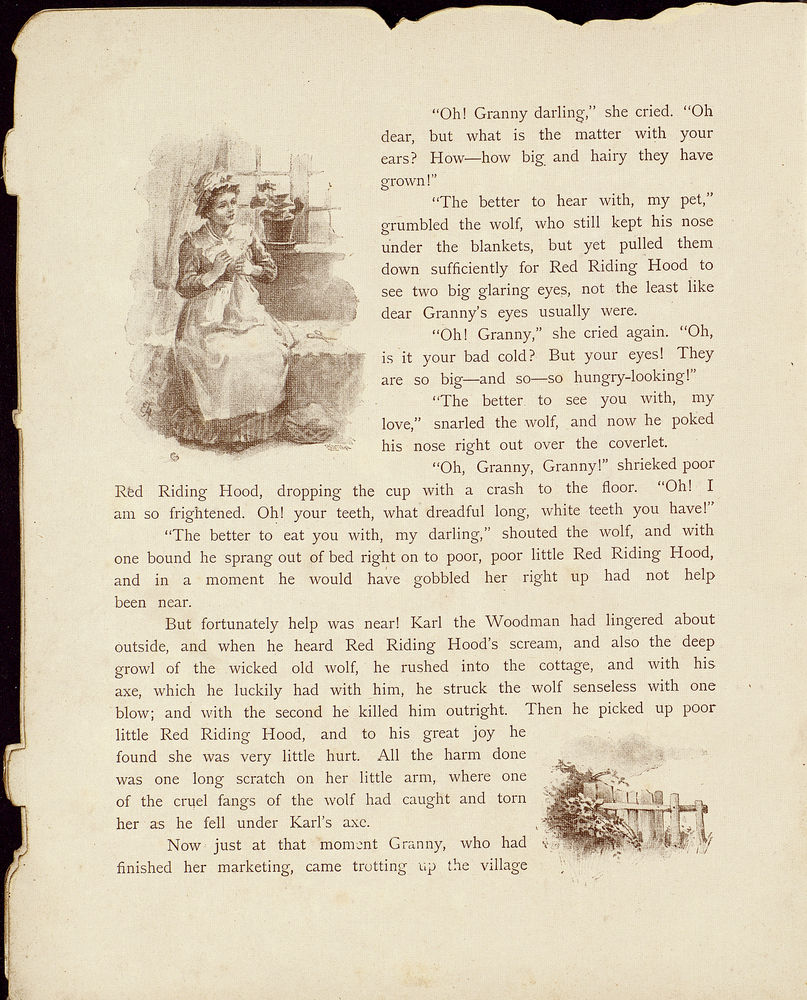 “Oh! Granny darling,” she cried. “Oh
dear, but what is the matter with your
ears? How—how big and hairy they have
grown!”
“The better to hear with, my pet,”
grumbled the wolf, who still kept his nose
under the blankets, but yet pulled them
down sufficiently for Red Riding Hood to
see two big glaring eyes, not the least like
dear Granny’s eyes usually were.
“Oh! Granny,” she cried again. “Oh,
is it your bad cold? But your eyes! They
are so big—and so—so hungry-looking!”
“The better to see you with, my
love,” snarled the wolf, and now he poked
his nose right out over the coverlet.
“Oh, Granny, Granny!” shrieked poor
Red Riding Hood, dropping the cup with a crash to the floor. “Oh! I
am so frightened. Oh! your teeth, what dreadful long, white teeth you have!”
“The better to eat you with, my darling,” shouted the wolf, and with
one bound he sprang out of bed right on to poor, poor little Red Riding Hood,
and in a moment he would have gobbled her right up had not help
been near.
But fortunately help was near! Karl the Woodman had lingered about
outside, and when he heard Red Riding Hood’s scream, and also the deep
growl of the wicked old wolf, he rushed into the cottage, and with his
axe, which he luckily had with him, he struck the wolf senseless with one
blow; and with the second he killed him outright. Then he picked up poor
little Red Riding Hood, and to his great joy he
found she was very little hurt. All the harm done
was one long scratch on her little arm, where one
of the cruel fangs of the wolf had caught and torn
her as he fell under Karl’s axe.
Now just at that moment Granny, who had
finished her marketing, came trotting up the village